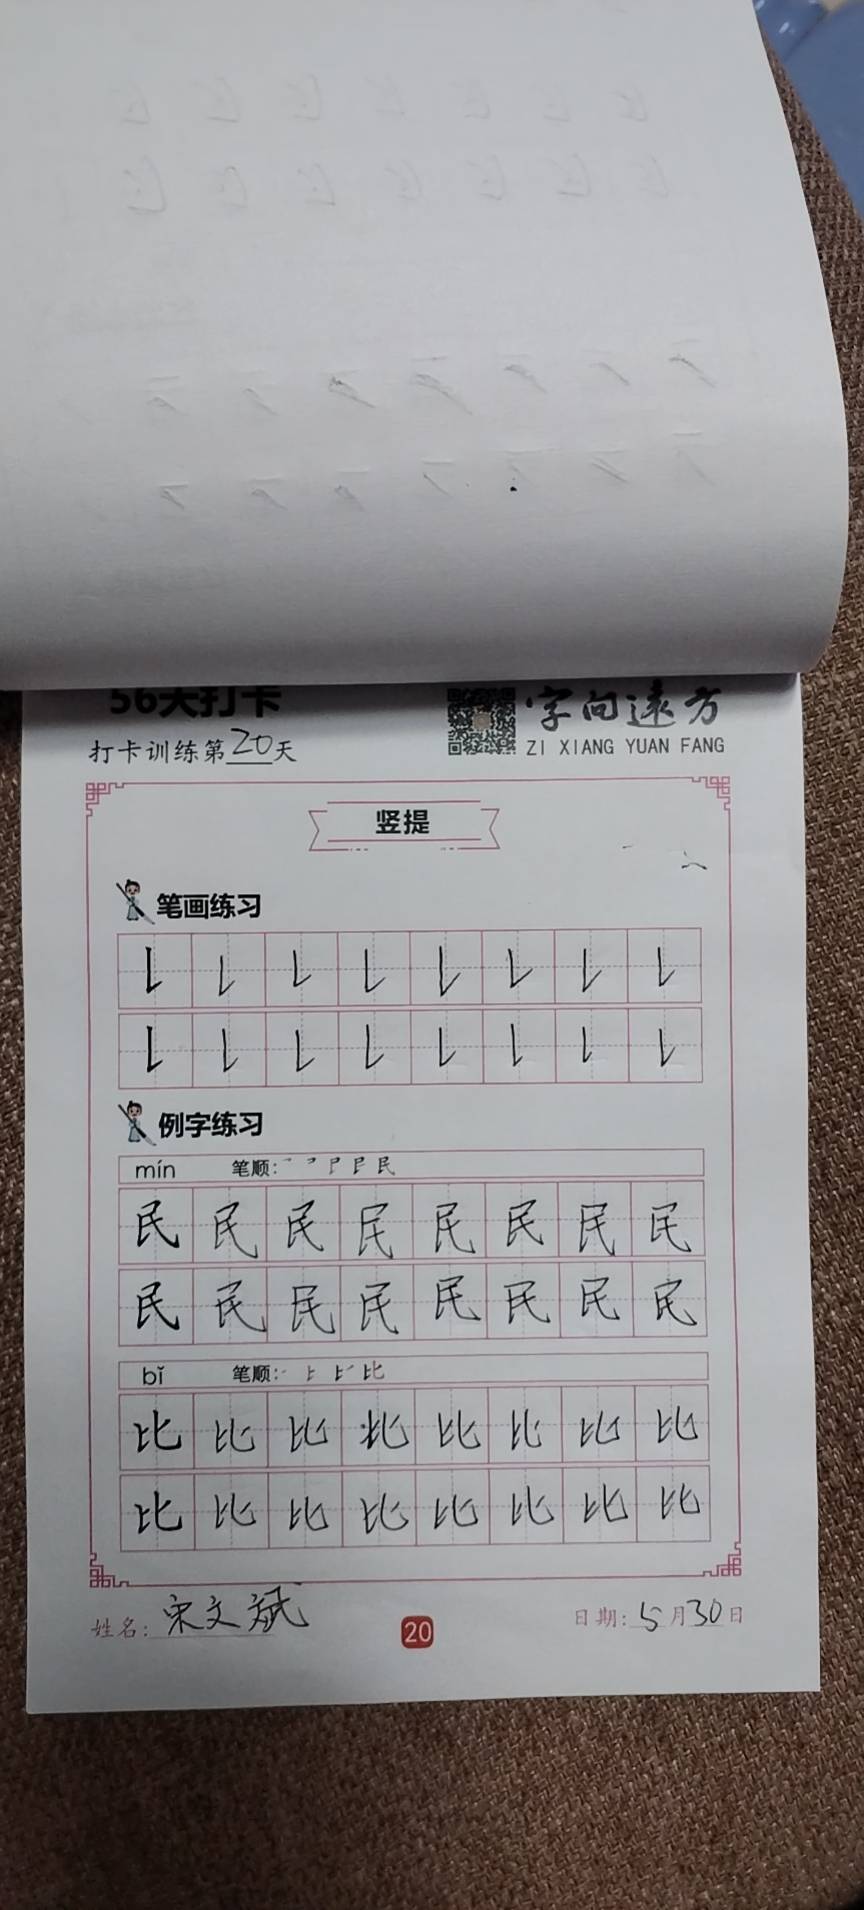 56天打卡
字向遠方
打卡训练第20天
ZI XIANG YUAN FANG
竖提
笔画练习
例字练习
mín 笔顺:
民
民民民民民民民民
民民民民民民民民
bǐ 笔顺:
比
比比比比比比比比
比比比比比比比比
姓名:宋文斌
20
日期:5月30日